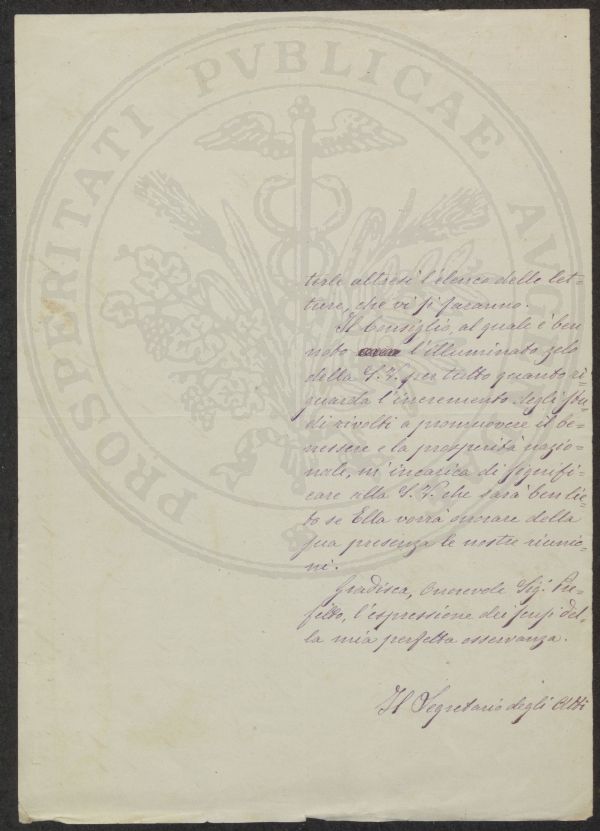 PROSPERITATI PVBLICAE AVG
terle altresì l'elenco delle let-
ture, che vi si faranno.
Il Consiglio, al quale è ben
noto l'illuminato zelo
della S. V. per tutto quanto ri-
guarda l'incremento degli stu-
di rivolti a promuovere il be-
nessere e la prosperità nazio-
nale, m'incarica di significi-
care alla S. V. che sarà ben lie-
to se Ella vorrà onorare della
sua presenza le nostre riunio-
ni.
Gradisca, Onorevole Sig. Pre-
fetto, l'espressione dei sensi del-
la mia perfetta osservanza.
Il Segretario degli Atti